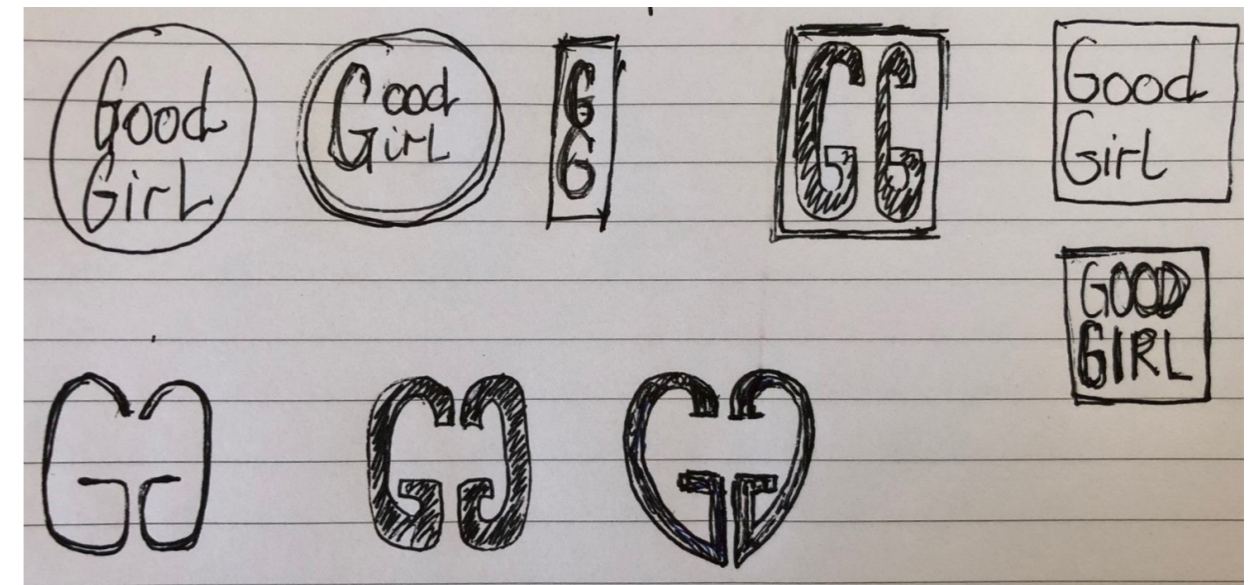 Good
Girl
Good
Girl
G
G
GG
Good
Girl
GOOD
GIRL
GG
GG
GG